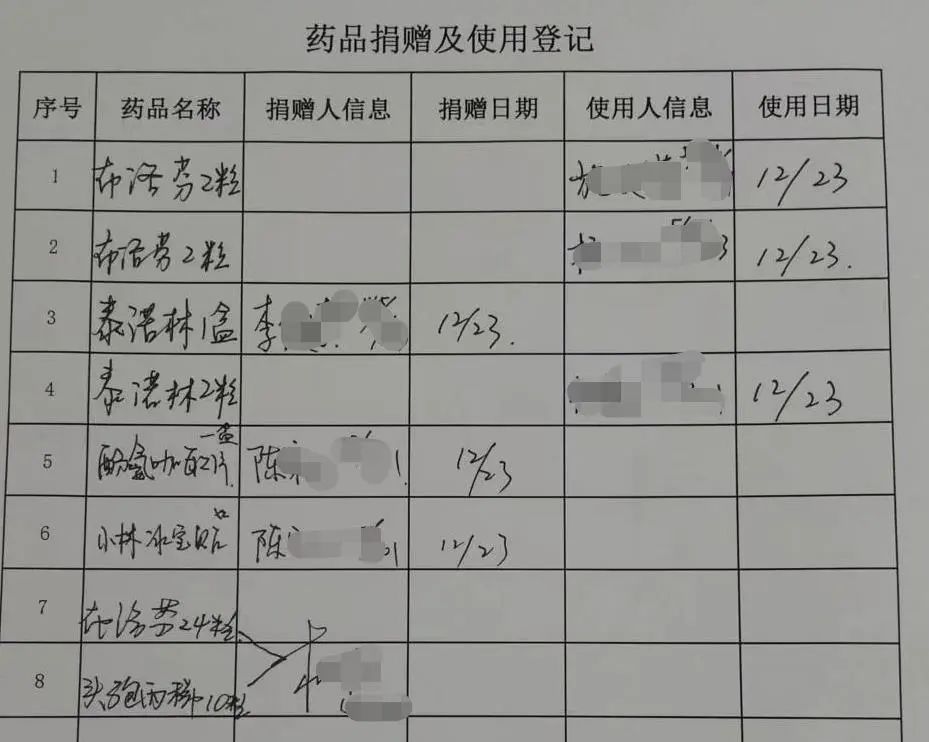 药品捐赠及使用登记
序号 药品名称 捐赠人信息 捐赠日期 使用人信息 使用日期
1 布洛芬2粒 12/23
2 布洛芬2粒 3 12/23.
3 泰诺林1盒 李 12/23.
4 泰诺林2粒 12/23
一盒
5 酚氨咖敏片 陈 12/23
6 小林冰宝贴 陈 12/23
7 布洛芬24粒
8 头孢丙烯10粒